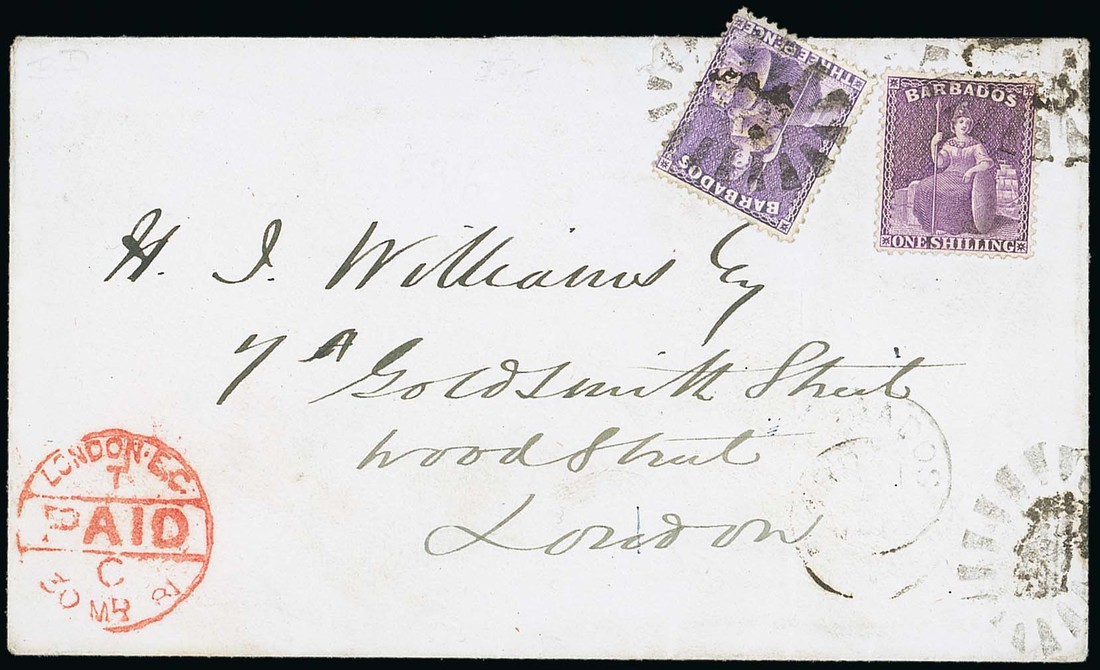 THREE PENCE
BARBADOS
BARBADOS
ONE SHILLING
H. J. Williams Esq
7A Goldsmith Street
Wood Street
London
LONDON·E.C.
PAID
C
30 MR